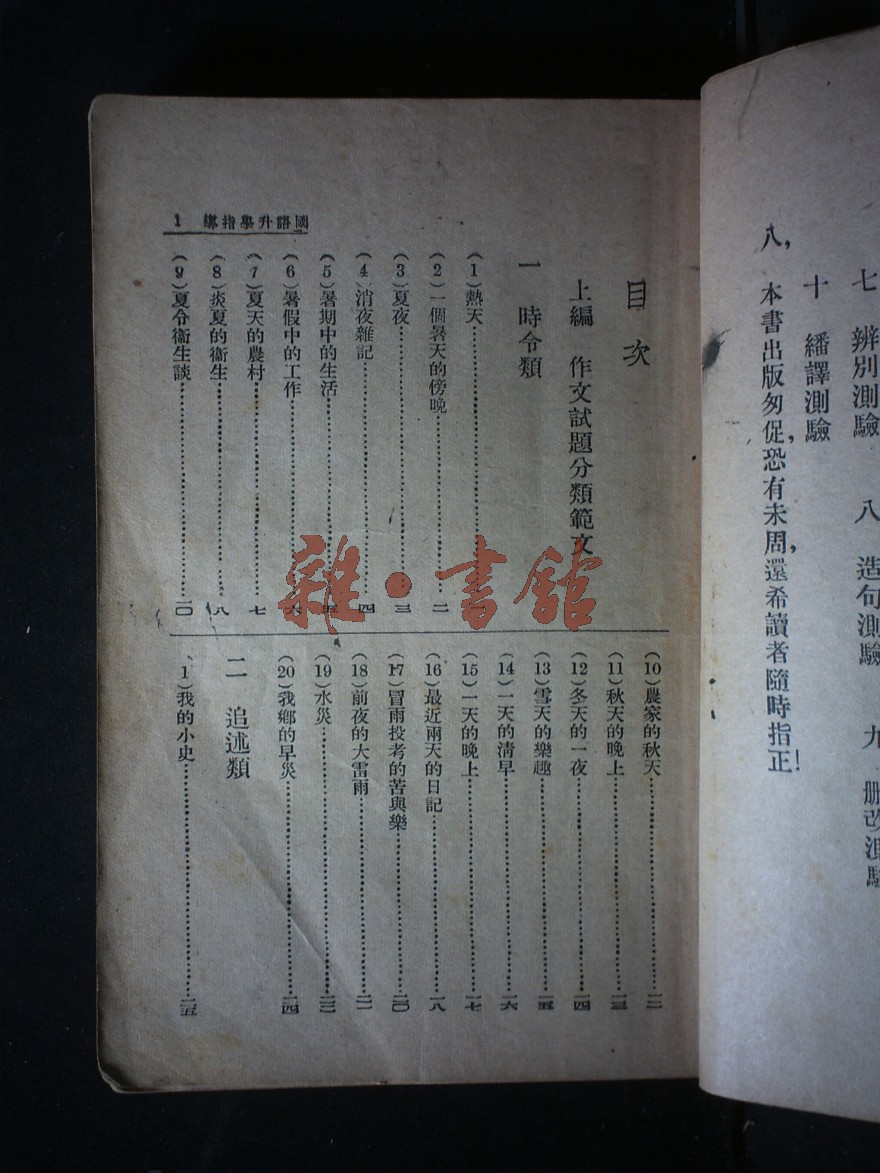 七　辨別測驗　八　造句測驗　九　刪改測驗
十　繙譯測驗
八，本書出版匆促，恐有未周，還希讀者隨時指正！
國語升學指導　1
目次
上編　作文試題分類範文
一　時令類
(1)熱天
(2)一個暑天的傍晚………二
(3)夏夜………三
(4)消夜雜記………四
(5)暑期中的生活………五
(6)暑假中的工作………六
(7)夏天的農村………七
(8)炎夏的衞生………八
(9)夏令衞生談………一〇
(10)農家的秋天………一二
(11)秋天的晚上………一三
(12)冬天的一夜………一四
(13)雪天的樂趣………一五
(14)一天的清早………一六
(15)一天的晚上………一七
(16)最近兩天的日記………一八
(17)冒雨投考的苦與樂………二〇
(18)前夜的大雷雨………二一
(19)水災………二二
(20)我鄉的旱災………二四
二　追述類
(1)我的小史………二五
雜·書館